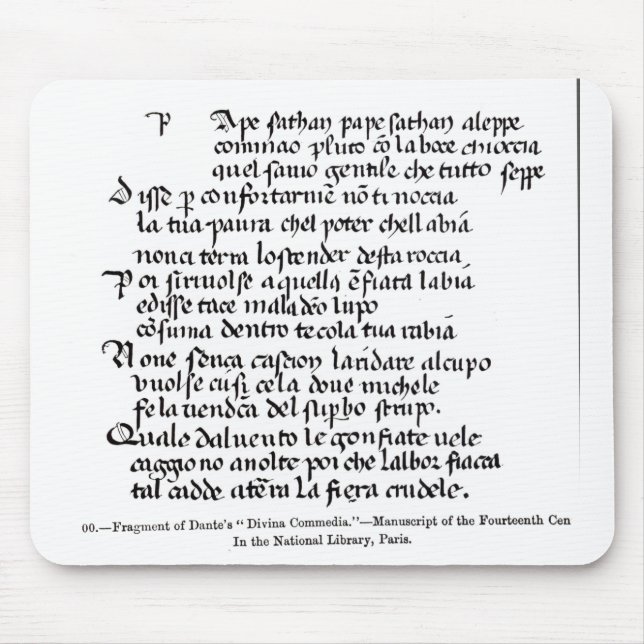 P Ape sathan pape sathan aleppe
cominao pluto cō la boce chioccia
quel savio gentile che tutto seppe
Disse p confortarmē nō ti noccia
la tua paura chel poter chell abiā
non ci terra lo scender desta roccia
Poi si rivolse a quella ēfiata labiā
e disse tace maladēo lupo
cōsuma dentro te cola tua rabiā
None senca cascion laridare alcupo
vuolse cusi ce la dove michele
fe la vendcā del supbo strupo.
Quale dal vento le gonfiate vele
caggiono anolte poi che lalbor fiacca
tal cadde atēra la fiera crudele.
00.—Fragment of Dante's “ Divina Commedia.”—Manuscript of the Fourteenth Cen
In the National Library, Paris.